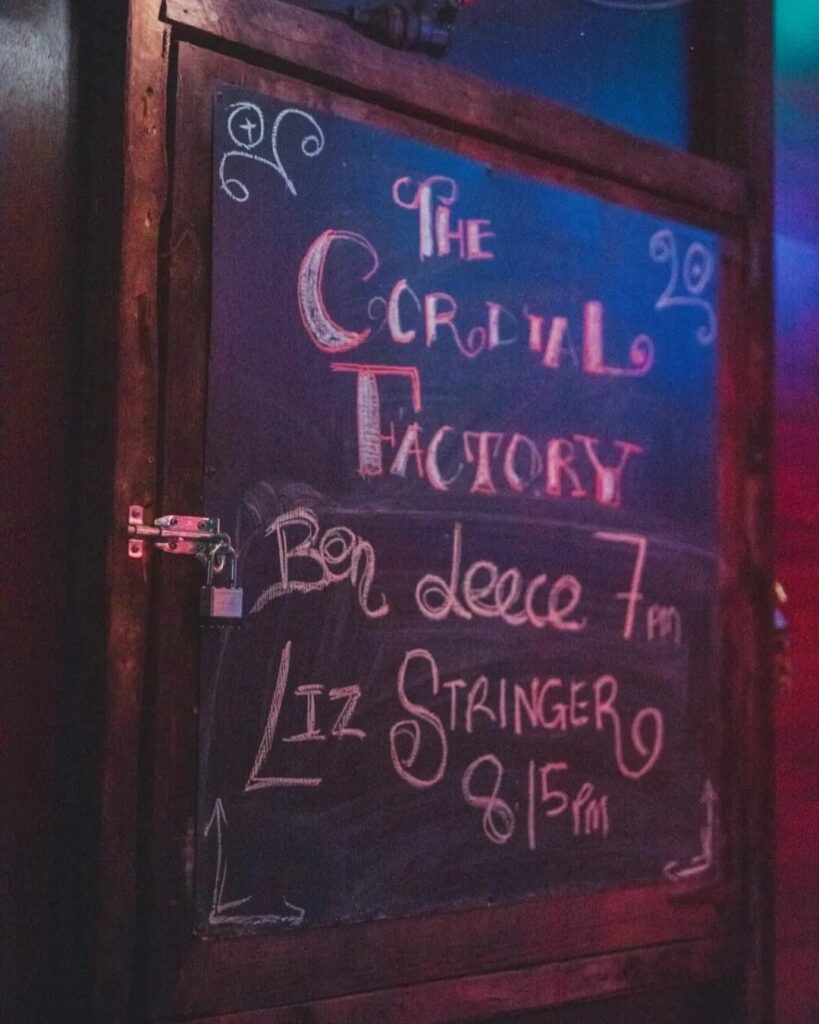 THE
CORDIAL
FACTORY
Ben Leece 7pm
LIZ STRINGER
8:15pm